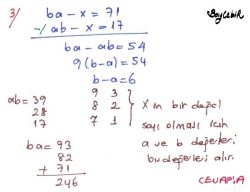 3/ ba - x = 71
-/ ab - x = 17
ba - ab = 54
9(b-a) = 54
b-a = 6
ab = 39
28
17
9 3
8 2
7 1
X in bir doğal
sayı olması için
a ve b değerleri
bu değerleri alır.
ba = 93
82
+ 71
246
CEVAP: A